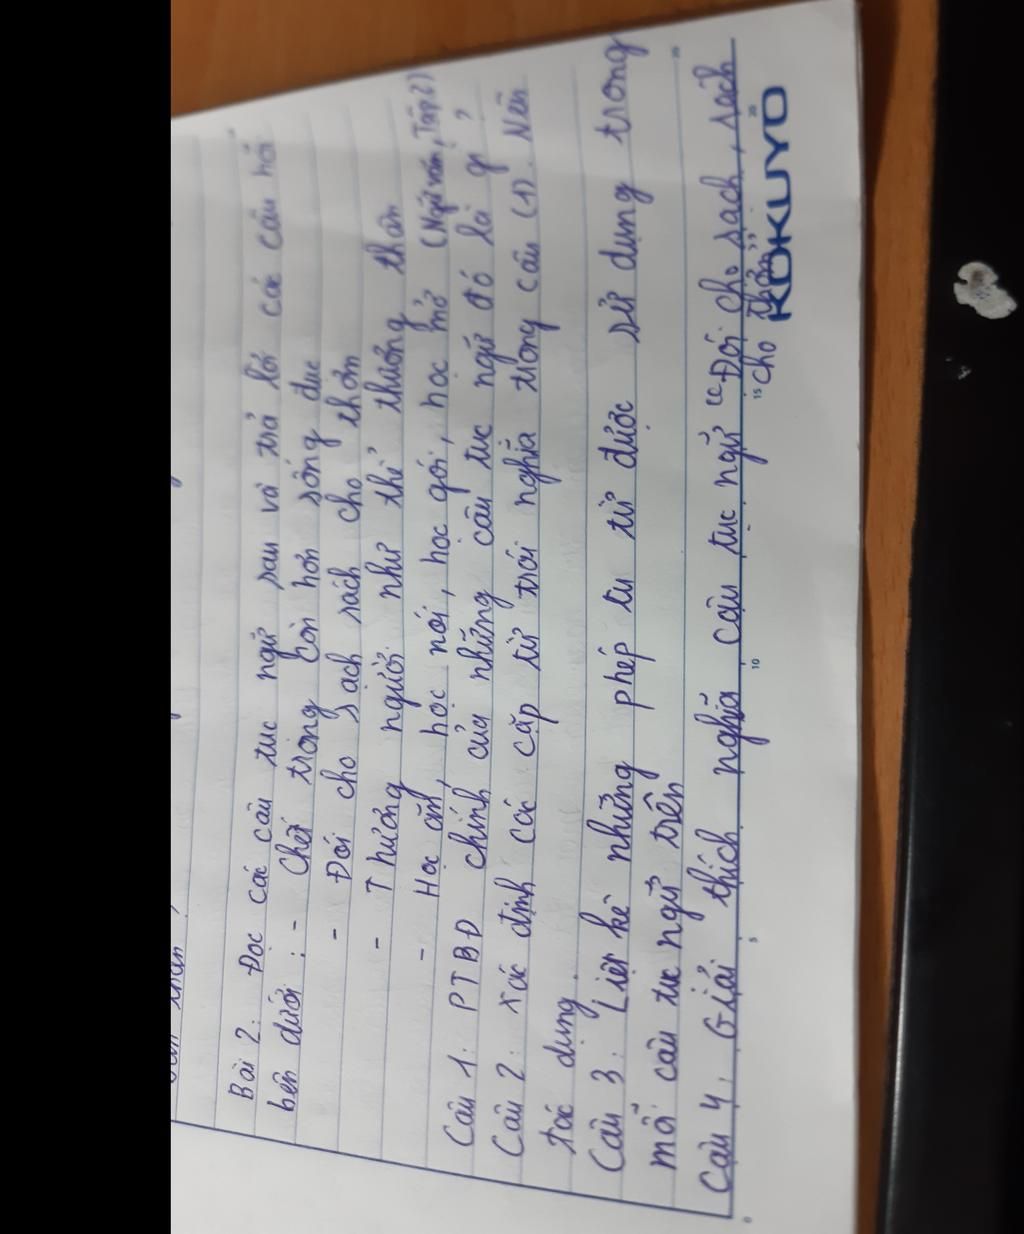 Bài 2: Đọc các câu tục ngữ sau và trả lời các câu hỏi
bên dưới: - Chết trong còn hơn sống đục
- Đói cho sạch rách cho thơm
- Thương người như thể thương thân
- Học ăn, học nói, học gói, học mở (Ngữ văn, Tập 2)
Câu 1: PTBĐ chính của những câu tục ngữ đó là gì?
Câu 2: Xác định các cặp từ trái nghĩa trong câu (1). Nêu
tác dụng.
Câu 3: Liệt kê những phép tu từ được sử dụng trong
mỗi câu tục ngữ trên
Câu 4: Giải thích nghĩa câu tục ngữ "Đói cho sạch, rách
cho thơm"
KOKUYO
5
10
15
20